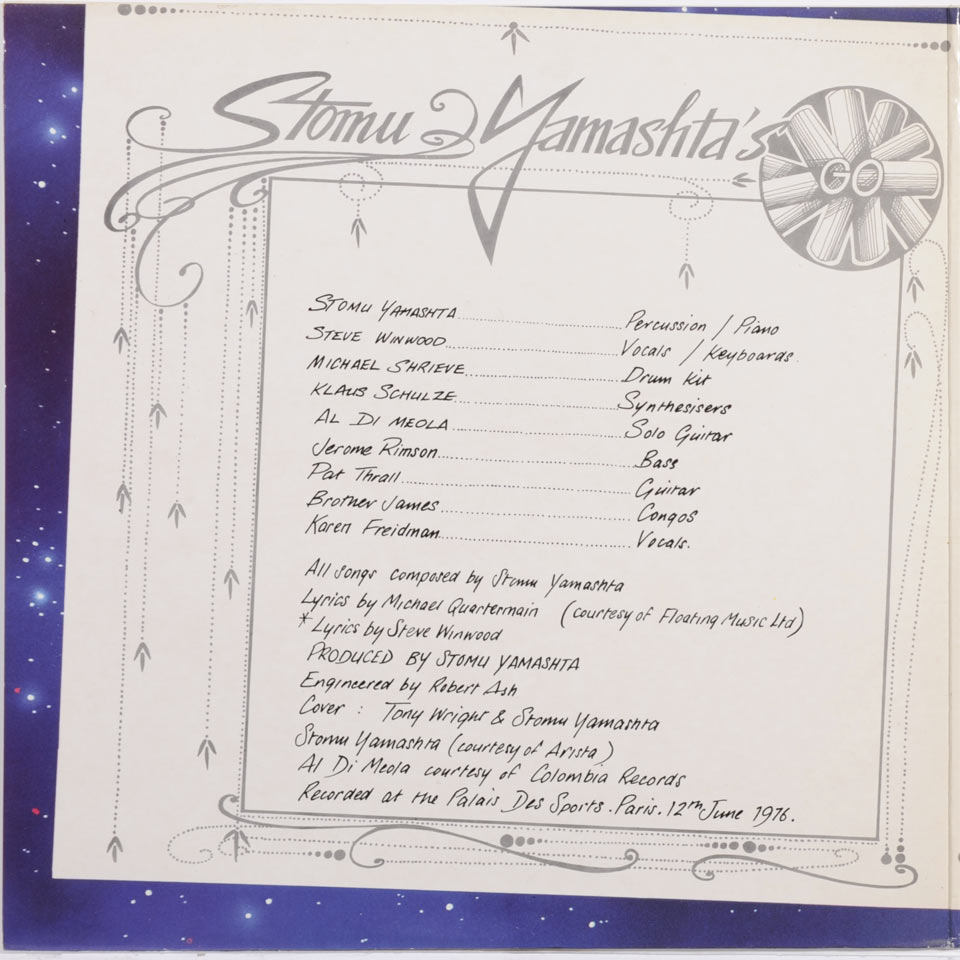 Stomu Yamashta's
GO
STOMU YAMASHTA........................Percussion / Piano
STEVE WINWOOD........................Vocals / Keyboards.
MICHAEL SHRIEVE........................Drum Kit
KLAUS SCHULZE........................Synthesisers
AL DI MEOLA........................Solo Guitar
Jerome Rimson........................Bass
Pat Thrall........................Guitar
Brother James........................Congos
Karen Freidman........................Vocals.
All songs composed by Stomu Yamashta
Lyrics by Michael Quartermain (courtesy of Floating Music Ltd)
*Lyrics by Steve Winwood
PRODUCED BY STOMU YAMASHTA
Engineered by Robert Ash
Cover : Tony Wright & Stomu Yamashta
Stomu Yamashta (courtesy of Arista)
Al Di Meola courtesy of Colombia Records
Recorded at the Palais Des Sports. Paris. 12th June 1976.